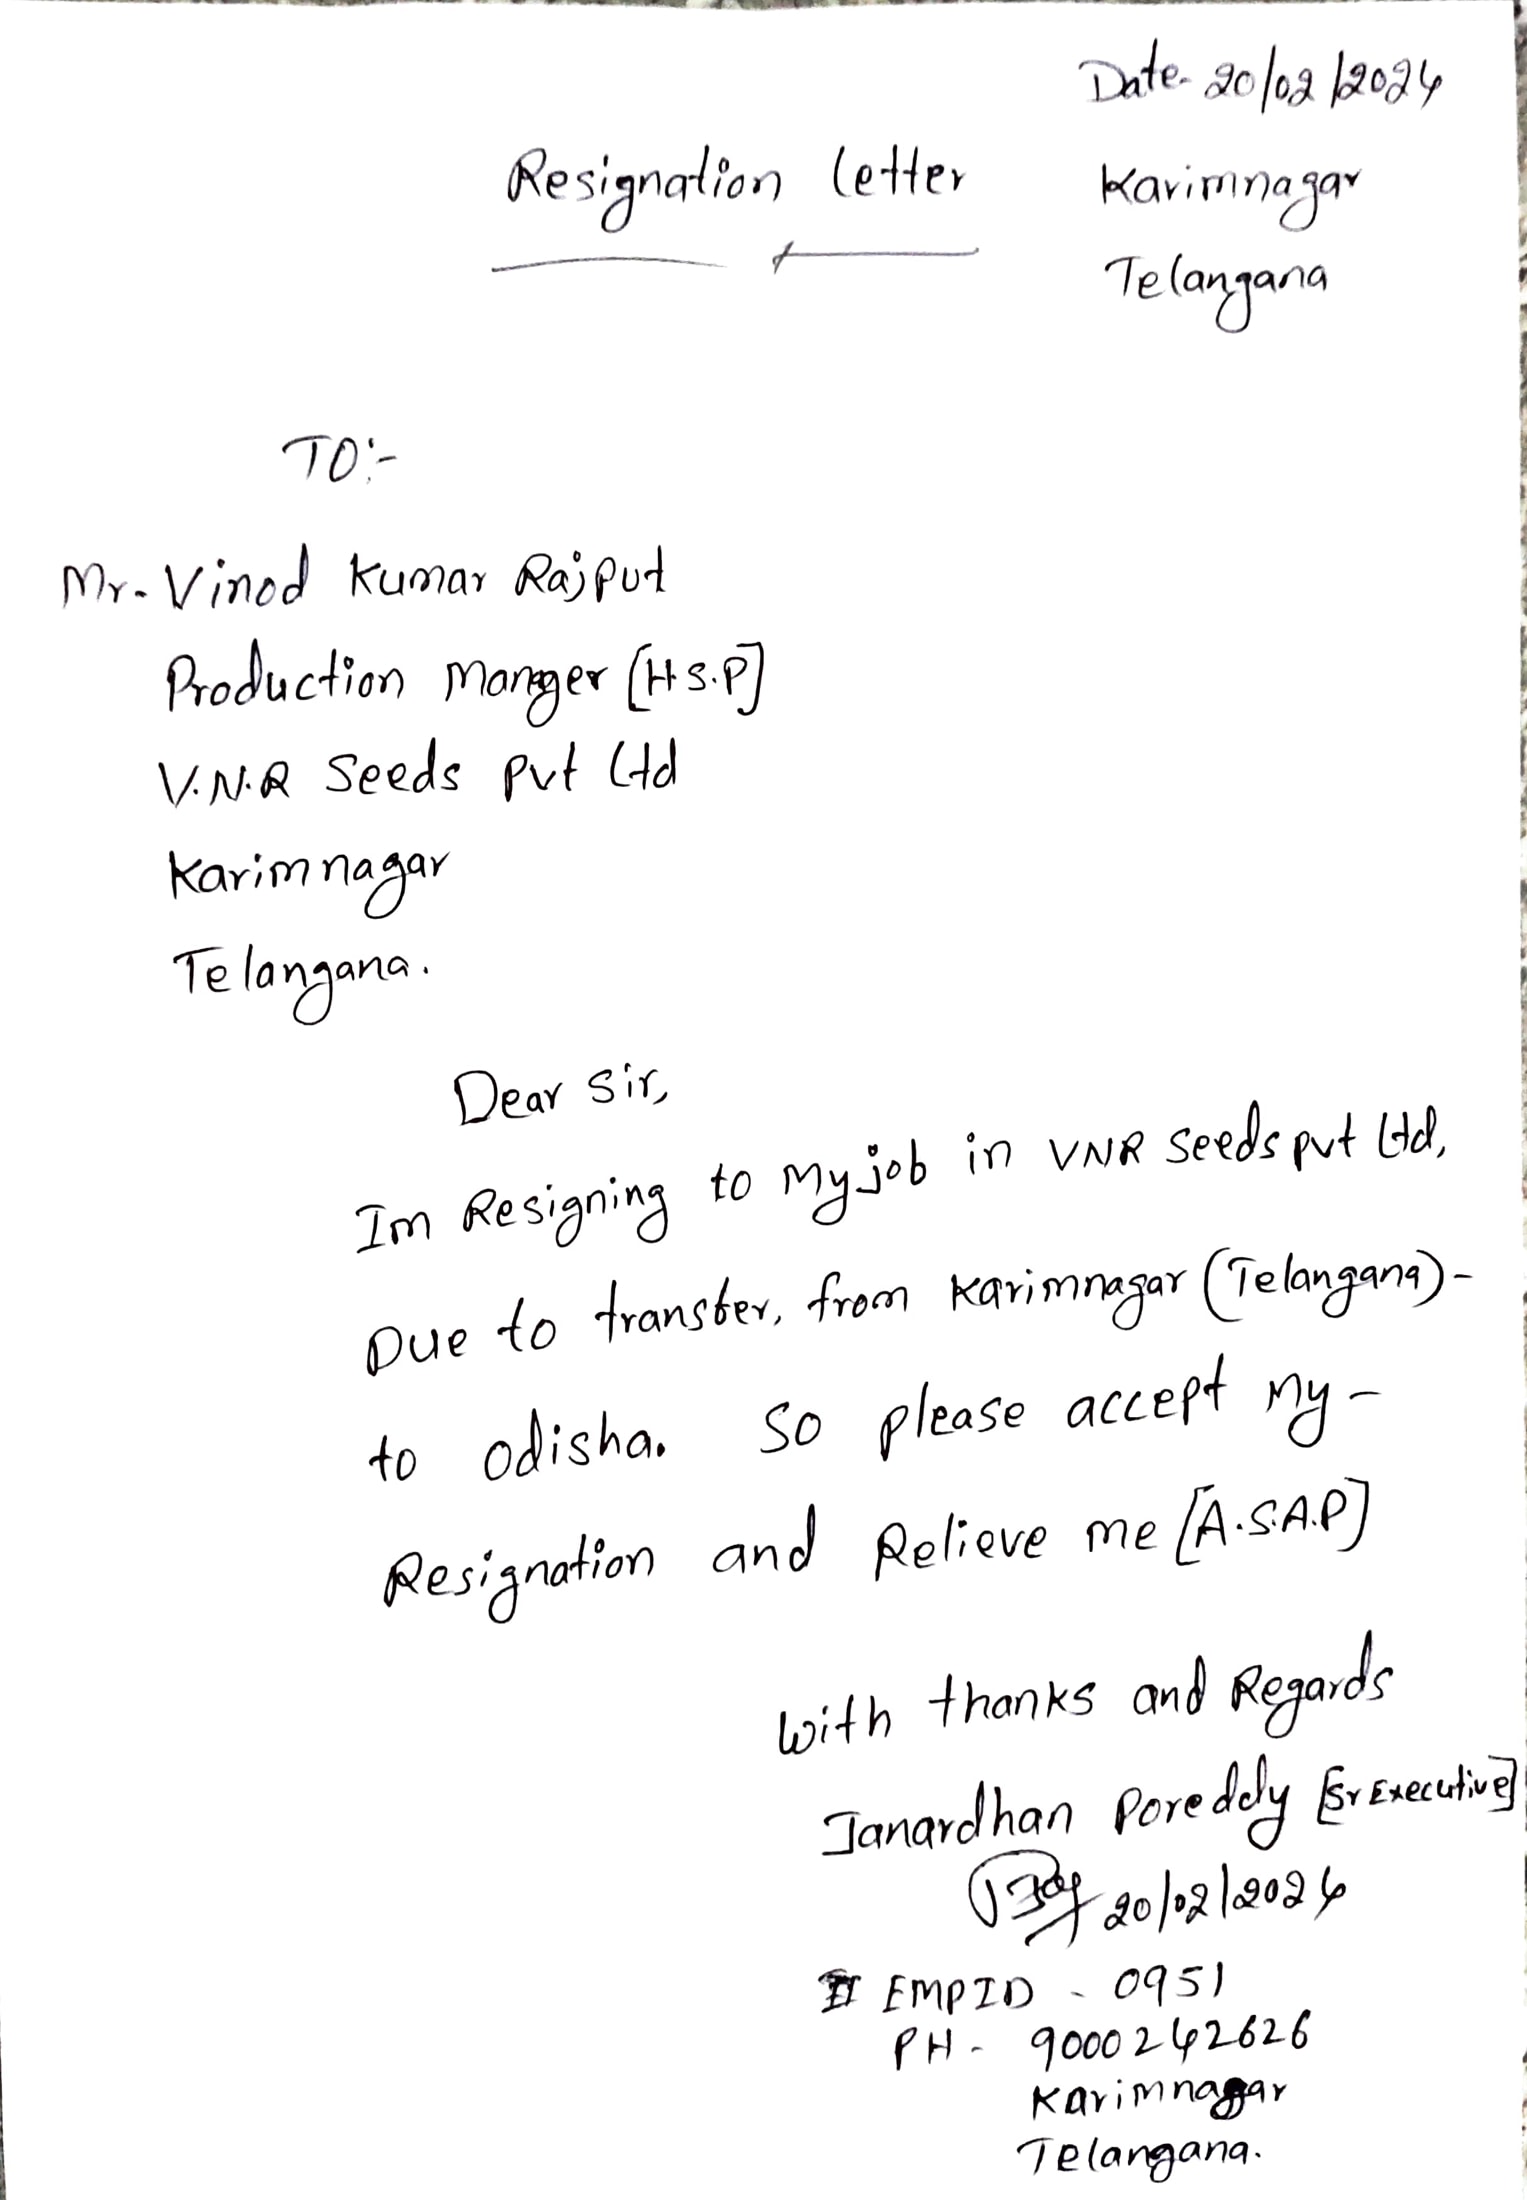 Date- 20/02/2024
Resignation Letter
Karimnagar
Telangana
TO:-
Mr. Vinod Kumar Rajput
Production Manger [H.S.P]
V.N.R Seeds Pvt Ltd
Karimnagar
Telangana.
Dear Sir,
Im Resigning to My job in VNR Seeds pvt Ltd,
Due to transfer, from Karimnagar (Telangana)-
to odisha. So please accept My-
Resignation and Relieve me [A.S.A.P]
With thanks and Regards
Janardhan Poreddy [Sr Executive]
20/02/2024
EMPID - 0951
PH - 9000242626
Karimnagar
Telangana.